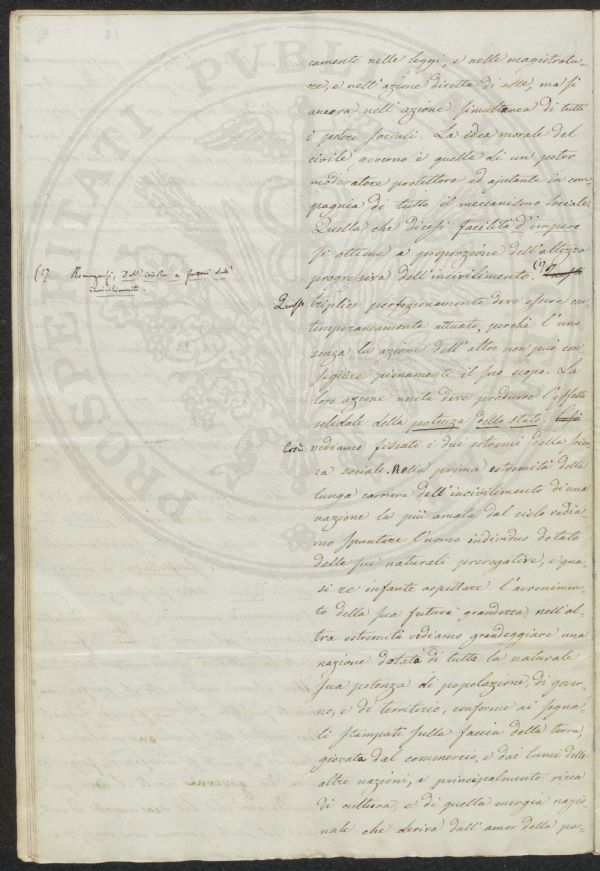 camente nelle leggi, e nelle magistratu-
re, e nell'azione diretta di esse, ma sì
ancora nell'azione simultanea di tutti
i poteri sociali. La idea morale del
civile governo è quella di un poter
moderatore protettore ed ajutante in com-
pagnia di tutto il meccanismo sociale.
Quella che dicesi facilità d'impero
si ottiene a proporzione dell'altezza
progressiva dell'incivilimento (1)
(1) Romagnosi, Dell'indole e fattori dell'
incivilimento.
Questo triplice perfezionamento deve essere con-
temporaneamente attuato, perchè l'uno
senza la azione dell'altro non può con-
seguire pienamente il suo scopo. La
loro azione unita deve produrre l'effetto
solidale della potenza dello stato. Così
Così vediamo fissati i due estremi della scien-
za sociale. Nella prima estremità della
lunga carriera dell'incivilimento di una
nazione la più amata dal cielo vedia-
mo spuntare l'uomo individuo dotato
delle sue naturali prerogative, e qua-
si re infante aspettare l'avvenimen-
to della sua futura grandezza; nell'al-
tra estremità vediamo grandeggiare una
nazione dotata di tutta la naturale
sua potenza di popolazione, di gover-
no, e di territorio, conforme ai segna-
li stampati sulla faccia della terra,
giovata dal commercio, e dai lumi delle
altre nazioni, e principalmente ricca
di cultura, e di quella energia nazio-
nale che deriva dall'amor della pa-
PROSPERITATI PUBLI